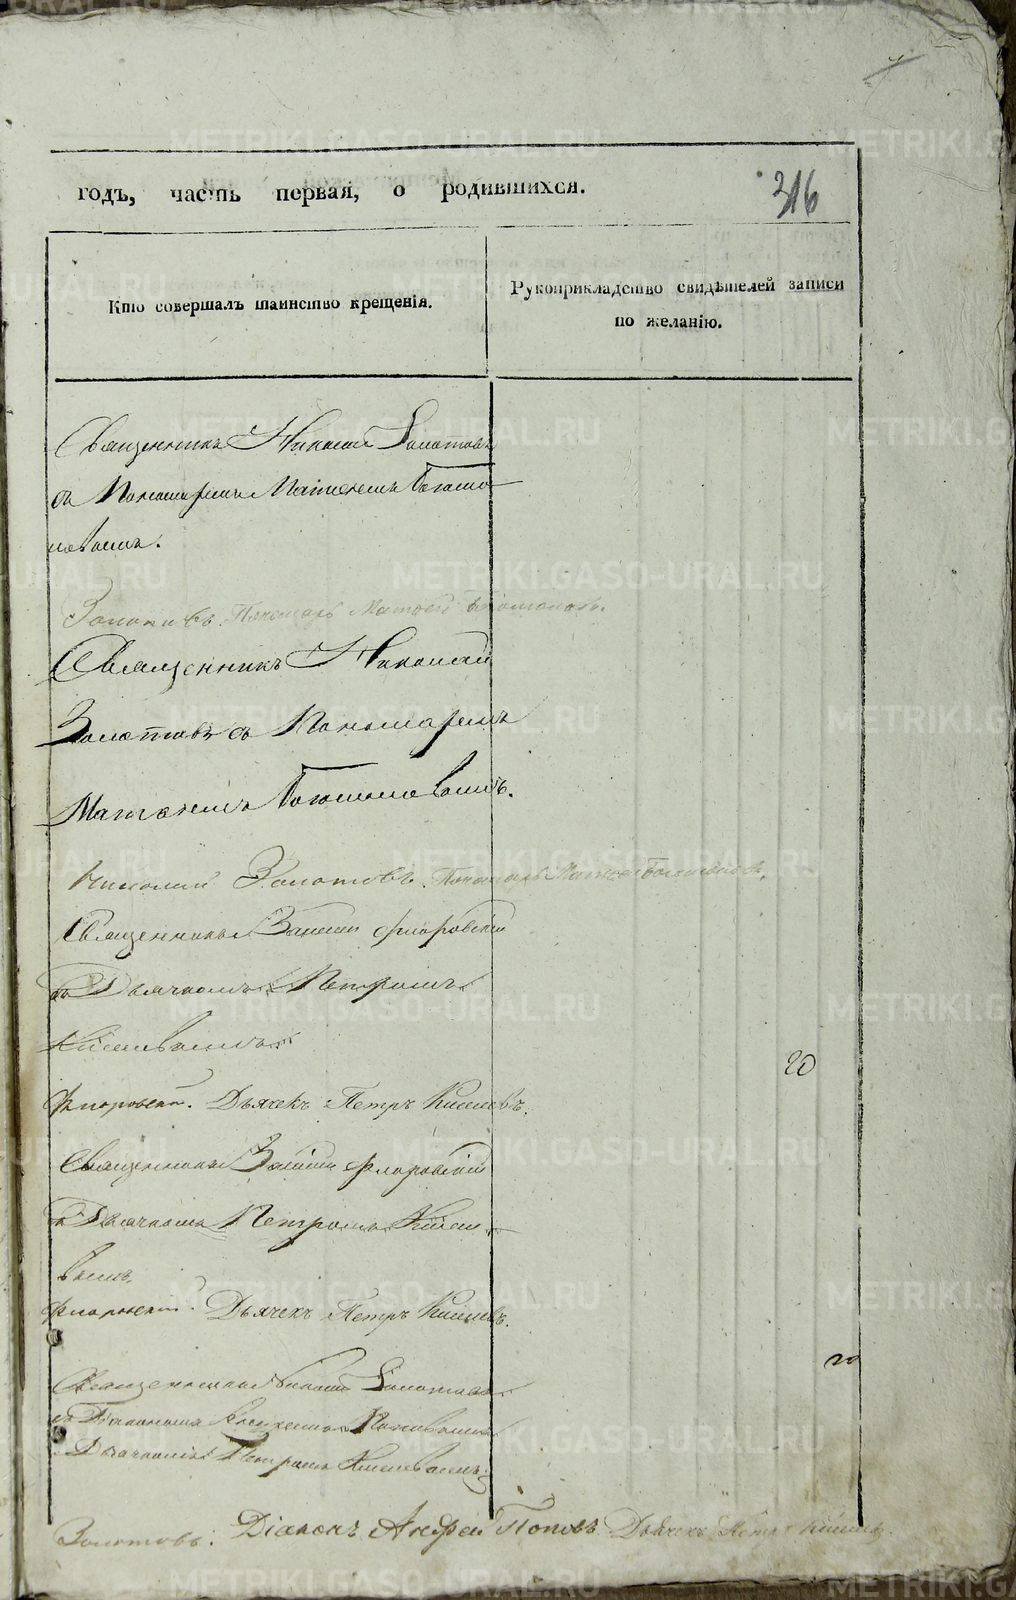 годъ, часть первая, о родившихся.
316
Кто совершалъ таинство крещенія.
Рукоприкладство свидѣтелей записи
по желанію.
Священникъ Николай Золотовъ
съ Пономаремъ Матѳеемъ Богомо
ловымъ.
Золотовъ. Пономарь Матвей Богомоловъ.
Священникъ Николай
Золотовъ съ Пономаремъ
Матѳеемъ Богомоловымъ.
Николай Золотовъ. Пономарь Матвей Богомоловъ.
Священникъ Флоровскій
съ Дьячкомъ Петромъ
Киселевымъ
20
Флоровскій. Дьячекъ Петръ Киселевъ.
Священникъ Флоровскій
съ Дьячкомъ Петромъ Кисел
вымъ.
Флоровскій. Дьячекъ Петръ Киселевъ.
20
Священникъ Николай Золотовъ
съ Діакономъ Андреемъ Поповымъ
Дьячкомъ Петромъ Киселевымъ.
Золотовъ. Діаконъ Андрей Поповъ Дьячекъ Петръ Киселевъ
METRIKI.GASO-URAL.RU